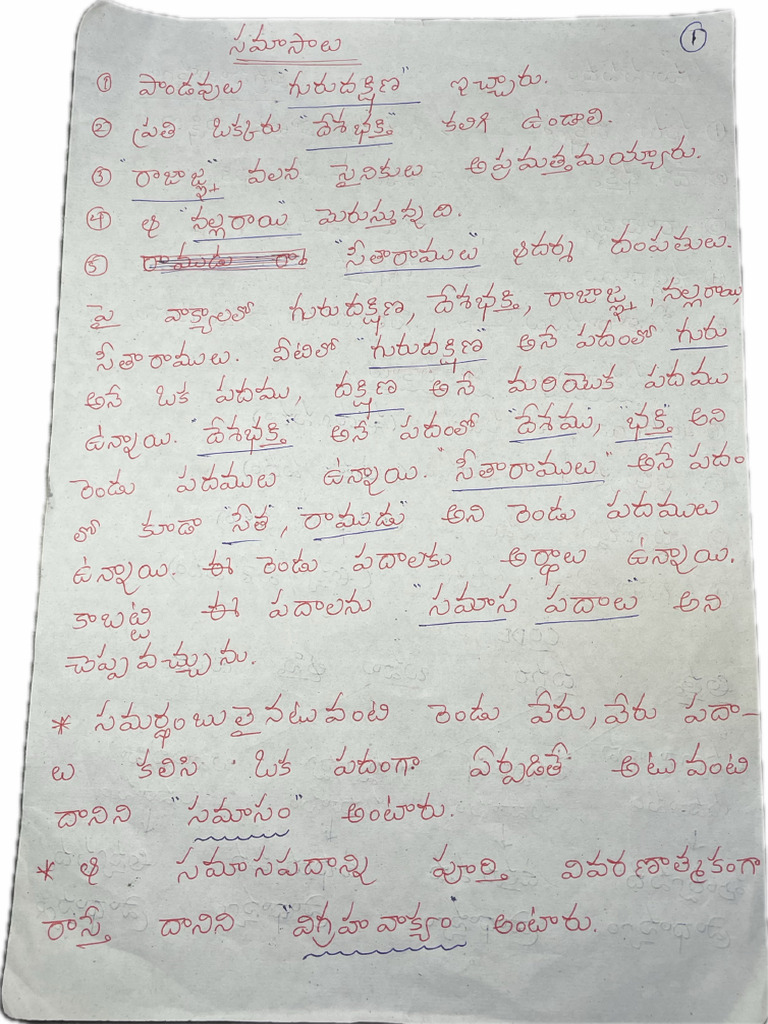 సమాసాలు
1
① పాండవులు "గురుదక్షిణ" ఇచ్చారు.
② ప్రతి ఒక్కరు "దేశభక్తి" కలిగి ఉండాలి.
③ "రాజాజ్ఞ" వలన సైనికులు అప్రమత్తమయ్యారు.
④ ఆ "నల్లరాయి" మెరుస్తున్నది.
⑤ "సీతారాములు" ఆదర్శ దంపతులు.
పై వాక్యాలలో గురుదక్షిణ, దేశభక్తి, రాజాజ్ఞ, నల్లరాయి,
సీతారాములు. వీటిలో "గురుదక్షిణ" అనే పదంలో గురు
అనే ఒక పదము, దక్షిణ అనే మరియొక పదము
ఉన్నాయి. "దేశభక్తి" అనే పదంలో "దేశము, "భక్తి" అని
రెండు పదములు ఉన్నాయి. "సీతారాములు" అనే పదం
లో కూడా "సీత", "రాముడు" అని రెండు పదములు
ఉన్నాయి. ఈ రెండు పదాలకు అర్థాలు ఉన్నాయి.
కాబట్టి ఈ పదాలను "సమాస పదాలు" అని
చెప్పవచ్చును.
* సమర్థంబులైనటువంటి రెండు వేరు, వేరు పదా-
లు కలిసి ఒక పదంగా ఏర్పడితే అటువంటి
దానిని "సమాసం" అంటారు.
* ఆ సమాసపదాన్ని పూర్తి వివరణాత్మకంగా
రాస్తే దానిని "విగ్రహవాక్యం" అంటారు.